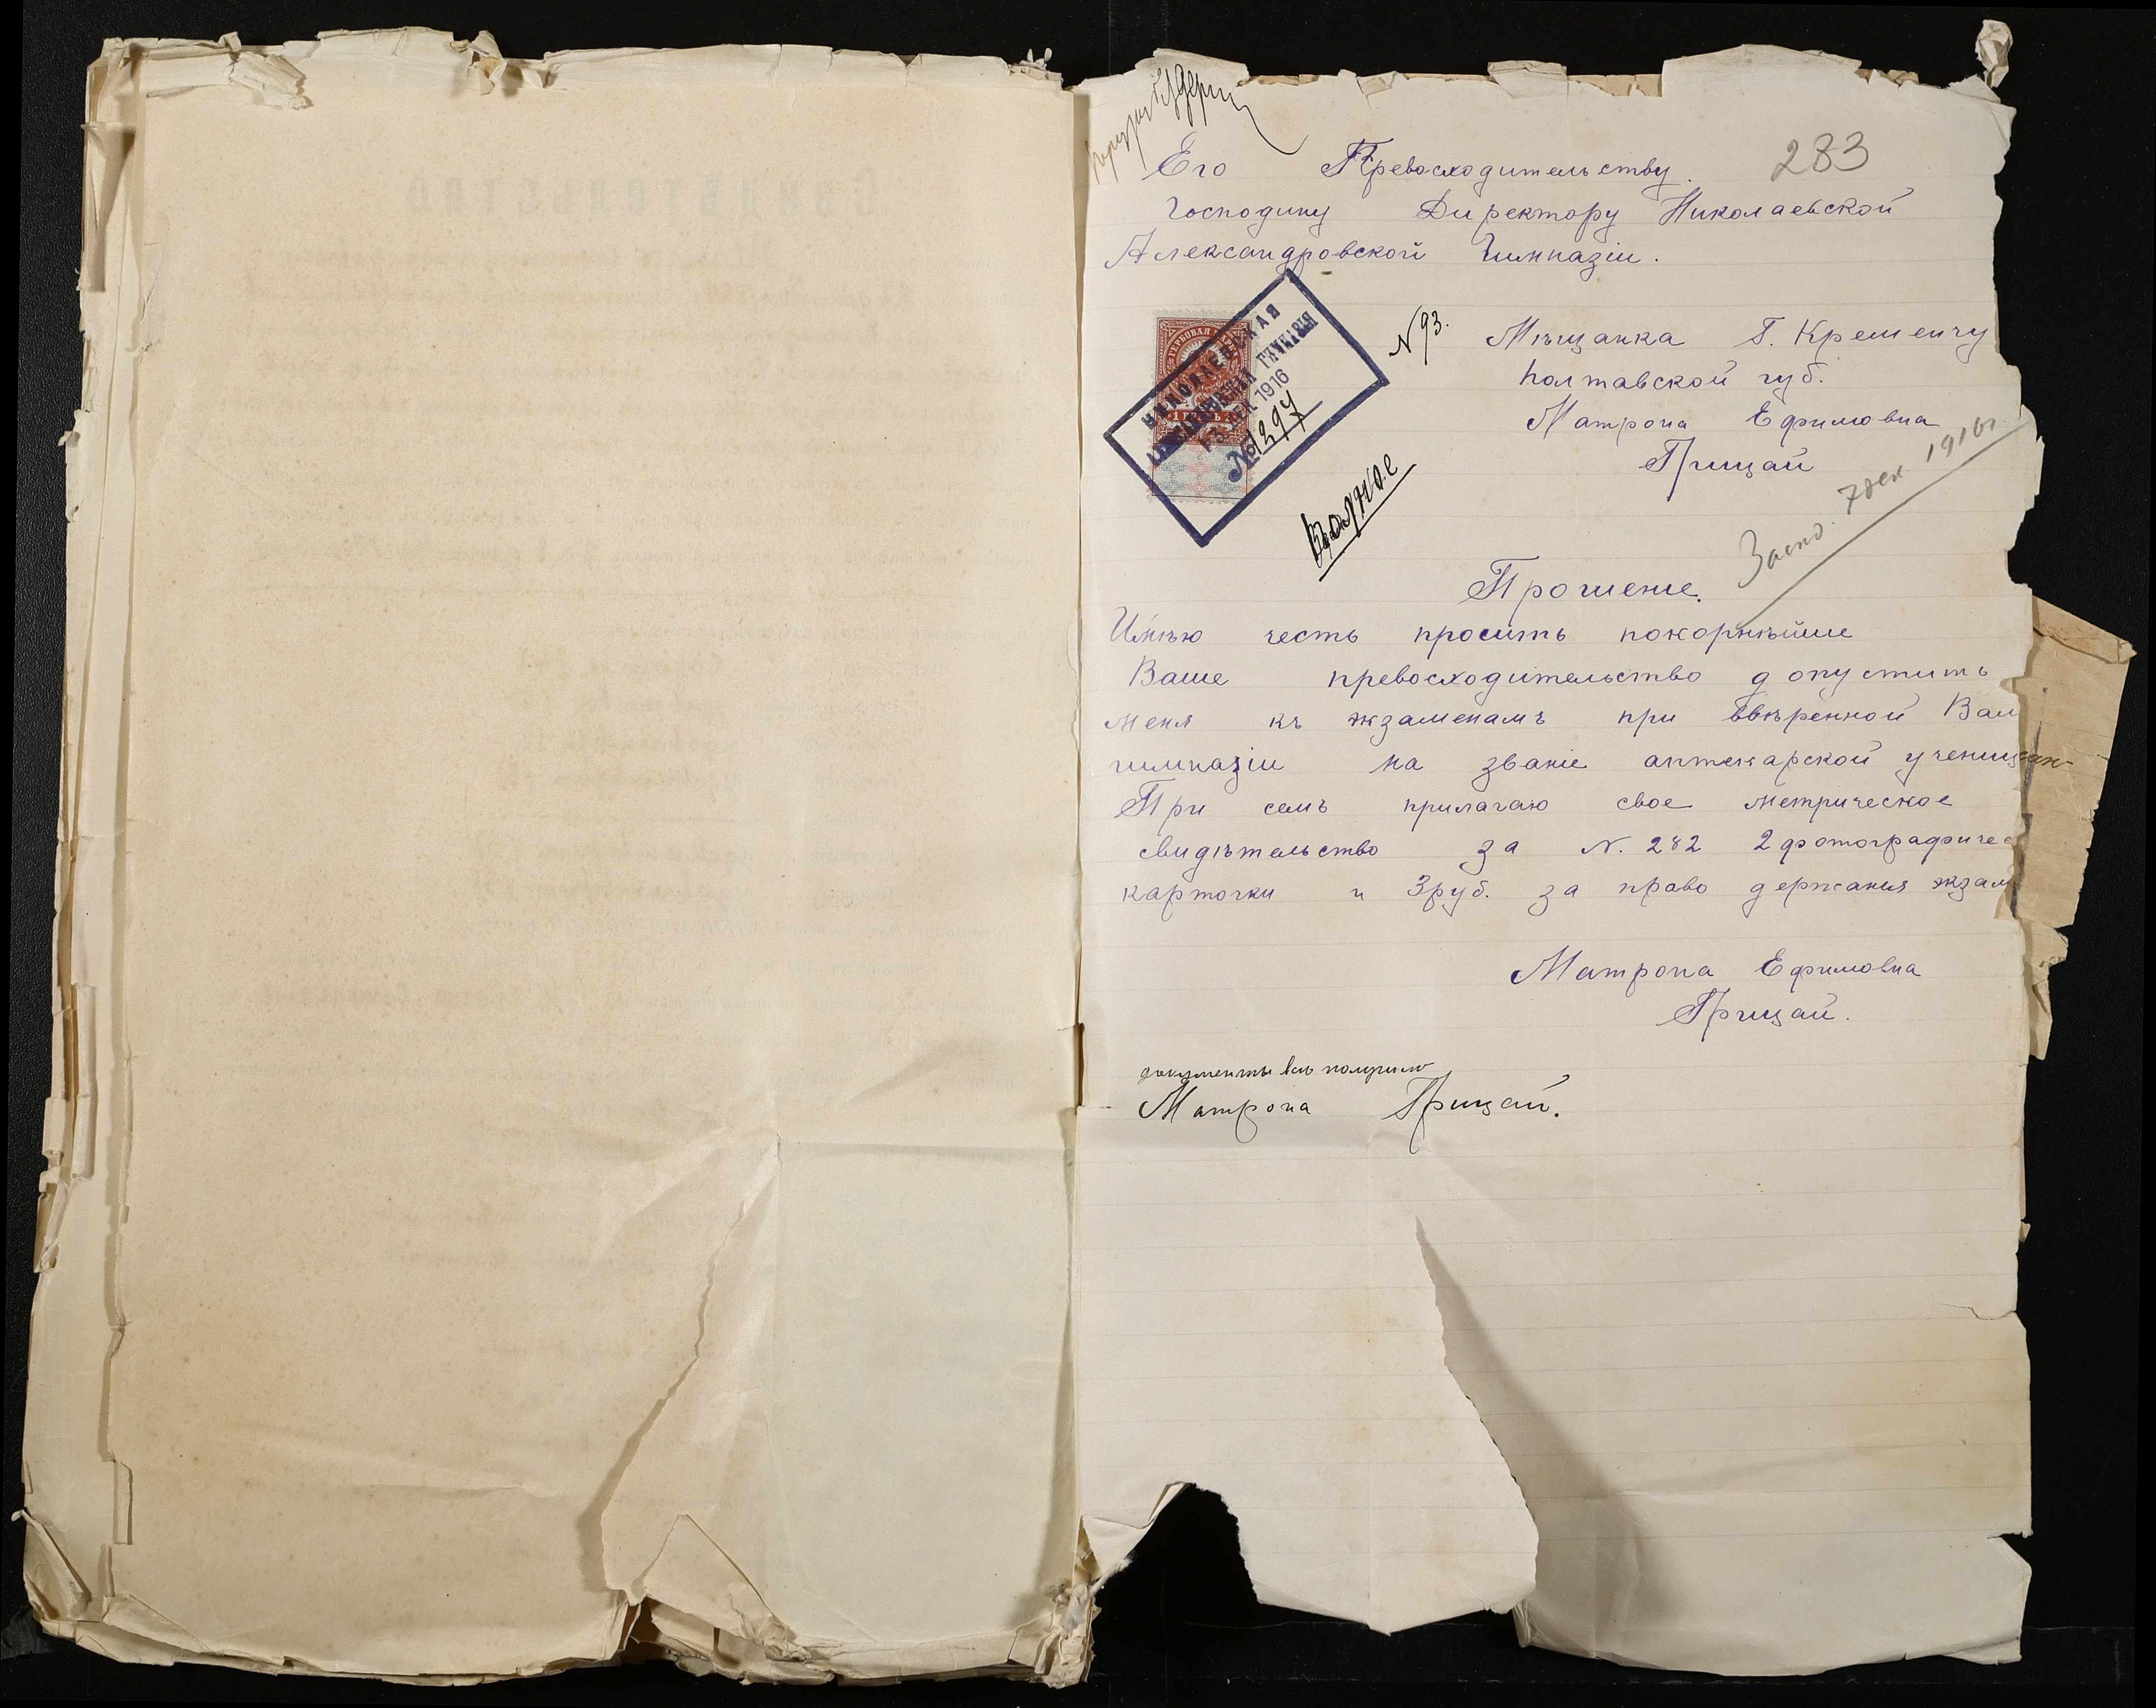 283
Его Превосходительству.
Господину Директору Николаевской
Александровской Гимназіи.
ГЕРБОВАЯ МАРКА
НИКОЛАЕВСКАЯ
АЛЕКСАНДРОВСКАЯ ГИМНАЗІЯ
ДЕК 1916
№ 1297
N 93.
Мѣщанка Г. Кременчу
Полтавской губ.
Матрона Ефимовна
Грицай
7 дек. 1916 г.
Прошеніе.
Имѣю честь просить покорнѣйше
Ваше превосходительство допустить
меня къ экзаменамъ при ввѣренной Вам
гимназіи на званіе аптекарской учениц
При семъ прилагаю свое метрическое
свидѣтельство за N. 282 2 фотографичес
карточки и 3 руб. за право держанія экзам
Матрона Ефимовна
Грицай.
документы всѣ получила
Матрона Грицай.